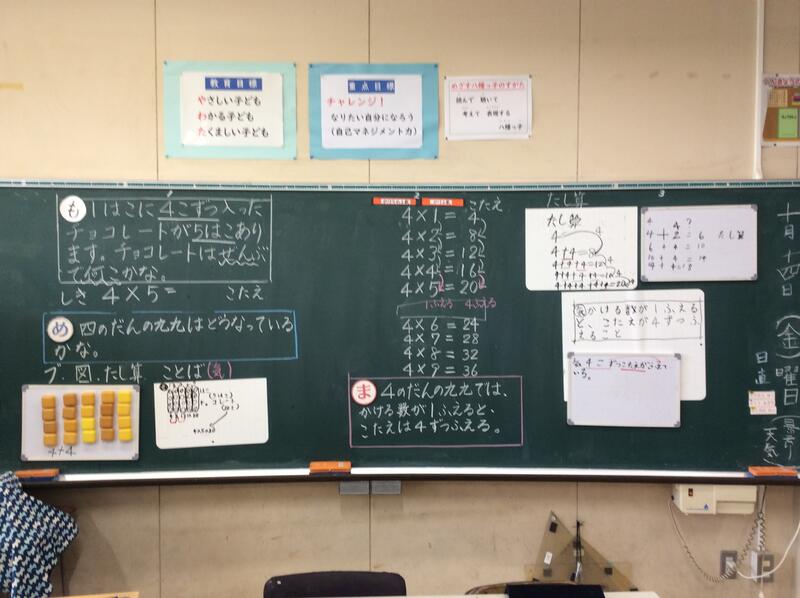 教育目標
やさしい子ども
わかる子ども
たくましい子ども
重点目標
チャレンジ!
なりたい自分になろう
(自己マネジメント力)
めざす八幡っ子のすがた
読んで 聴いて
考えて 表現する
八幡っ子
も 1はこに4こずつ入った
チョコレートが5はこあり
ます。チョコレートはぜんぶ
で何こかな。
しき 4×5= こたえ
め 四のだんの九九はどうなっている
かな。
ブ.図.たし算.ことば(気)
4+4
4×5=20
こたえ
4×1=4
4×2=8
4×3=12
4×4=16
4×5=20
1ふえる 4ふえる
4×6=24
4×7=28
4×8=32
4×9=36
ま 4のだんの九九では、
かける数が1ふえると、
こたえは4ずつふえる。
たし算
たし算
4
4+4=8
4+4+4=12
4+4+4+4=16
4+4+4+4+4=20
たし算
気 かける数が1ふえる
と、こたえが4ずつふ
えること
気 4こずつこたえがふえて
いる。
3
十月十四日(金)曜日
日直
天気